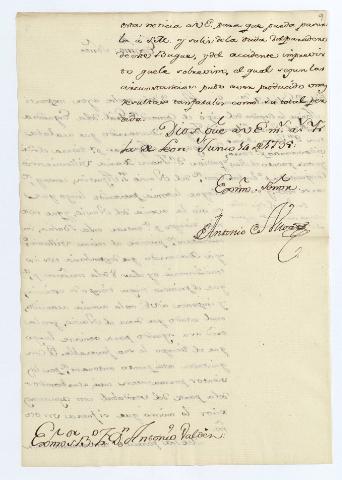 esta noticia à V.E. para que pueda pasarla
à S.M. y salir de la duda del paradero
de este Buque, y del accidente imprevisto
que le sobrevino, el qual segun las
circunstancias pudo aver producido unas
resultas tan fatales como su total perdida.
Dios gue. à V.E. ms. as. Ysla
de Leon Junio 14 de 1795.
Exmo. Señor
Antonio
Exmo. Sor. Bo. Fr. Dn. Antonio Valdés.